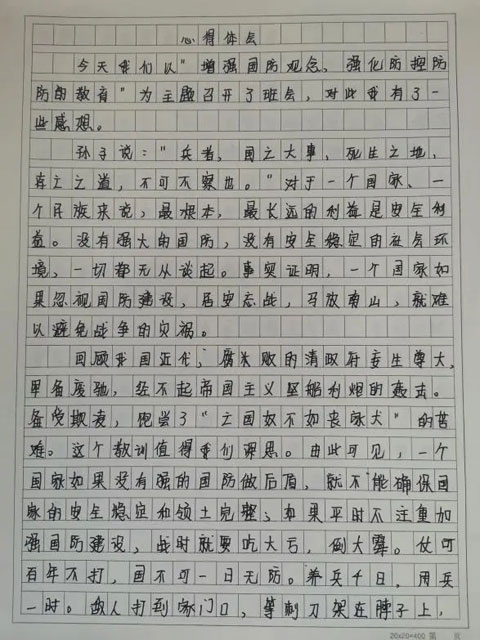 心得体会
今天我们以"增强国防观念,强化防控防
防的教育"为主题召开了班会,对此我有了一
些感想。
孙子说:"兵者,国之大事,死生之地,
存亡之道,不可不察也。"对于一个国家、一
个民族来说,最根本,最长远的利益是安全利
益。没有强大的国防,没有安全稳定的社会环
境,一切都无从谈起。事实证明,一个国家如
果忽视国防建设,居安忘战,马放南山,就难
以避免战争的灾祸。
回顾我国近代,腐失败的清政府妄生尊大,
军备废驰,经不起帝国主义坚船利炮的轰击。
备受欺凌,饱尝了"亡国奴不如丧家犬"的苦
难。这个教训值得我们深思。由此可见,一个
国家如果没有强的国防做后盾,就不能确保国
家的安全稳定和领土完整;如果平时不注重加
强国防建设,战时就要吃大亏,倒大霉。仗可
百年不打,国不可一日无防。养兵千日,用兵
一时。敌人打到家门口,等刺刀架在脖子上,
20x20=400 第 页